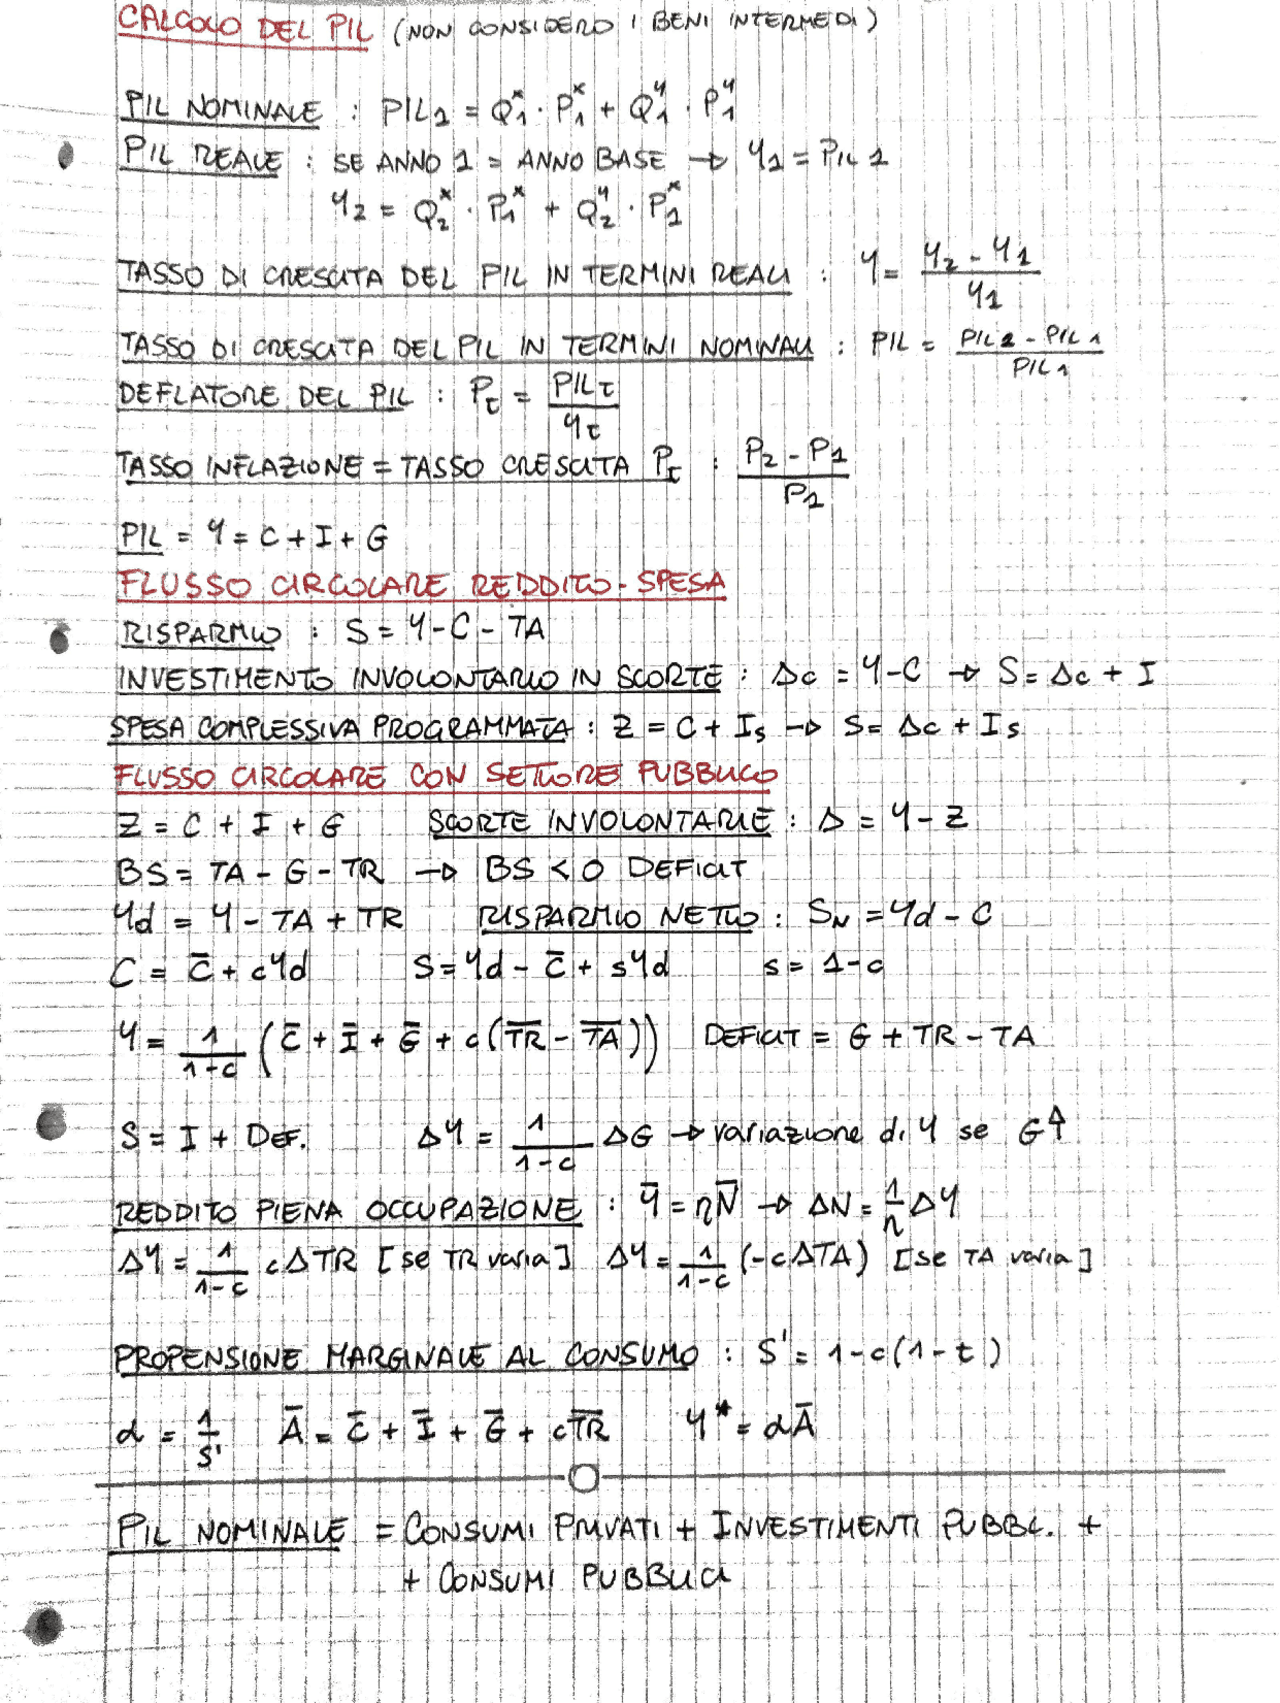 CALCOLO DEL PIL (NON CONSIDERO I BENI INTERMEDI)
PIL NOMINALE : PIL₁ = Q₁ˣ · P₁ˣ + Q₁ʸ · P₁ʸ
PIL REALE : SE ANNO 1 = ANNO BASE → Y₁ = PIL 1
Y₂ = Q₂ˣ · P₁ˣ + Q₂ʸ · P₁ˣ
TASSO DI CRESCITA DEL PIL IN TERMINI REALI : Y = (Y₂ - Y₁) / Y₁
TASSO DI CRESCITA DEL PIL IN TERMINI NOMINALI : PIL = (PIL 2 - PIL 1) / PIL 1
DEFLATORE DEL PIL : Pt = PILt / Yt
TASSO INFLAZIONE = TASSO CRESCITA Pt : (P₂ - P₁) / P₁
PIL = Y = C + I + G
FLUSSO CIRCOLARE REDDITO - SPESA
RISPARMIO : S = Y - C - TA
INVESTIMENTO INVOLONTARIO IN SCORTE : Δc = Y - C → S = Δc + I
SPESA COMPLESSIVA PROGRAMMATA : Z = C + Is → S = Δc + Is
FLUSSO CIRCOLARE CON SETTORE PUBBLICO
Z = C + I + G SCORTE INVOLONTARIE : Δ = Y - Z
BS = TA - G - TR → BS < 0 DEFICIT
Yd = Y - TA + TR RISPARMIO NETTO : S_N = Yd - C
C = C̄ + cYd S = Yd - C̄ + sYd s = 1 - c
Y = 1/(1-c) (C̄ + Ī + Ḡ + c(T̅R̅ - T̅A̅)) DEFICIT = G + TR - TA
S = I + DEF. ΔY = 1/(1-c) ΔG → variazione di Y se G↑
REDDITO PIENA OCCUPAZIONE : Ȳ = nN̄ → ΔN = 1/n ΔY
ΔY = 1/(1-c) cΔTR [se TR varia] ΔY = 1/(1-c) (-cΔTA) [se TA varia]
PROPENSIONE MARGINALE AL CONSUMO : S' = 1 - c(1 - t)
α = 1/S' Ā = C̄ + Ī + Ḡ + cT̅R̅ Y* = αĀ
PIL NOMINALE = CONSUMI PRIVATI + INVESTIMENTI PUBBL. +
+ CONSUMI PUBBLICI